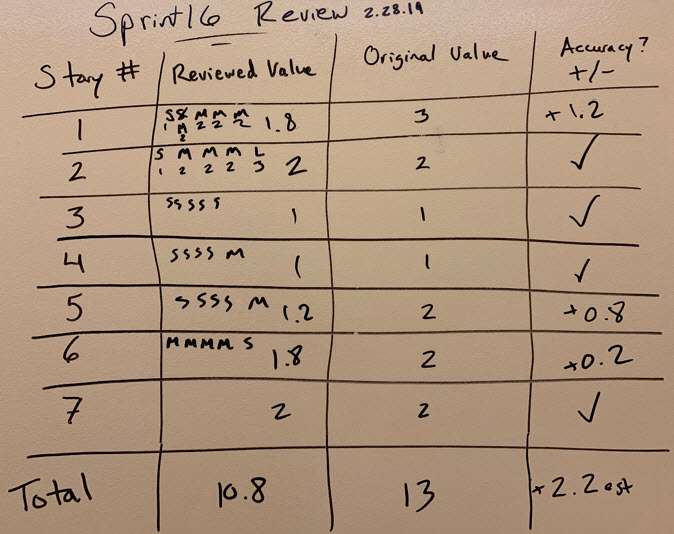 Sprint 16 Review 2.28.19
Story # Reviewed Value Original Value Accuracy? +/-
1 S M M M
1 2 2 2 2 1.8 3 +1.2
2 S M M M L
1 2 2 2 3 2 2 ✓
3 S S S S S 1 1 ✓
4 S S S S M 1 1 ✓
5 S S S S M 1.2 2 +0.8
6 M M M M S 1.8 2 +0.2
7 2 2 ✓
Total 10.8 13 +2.2 est